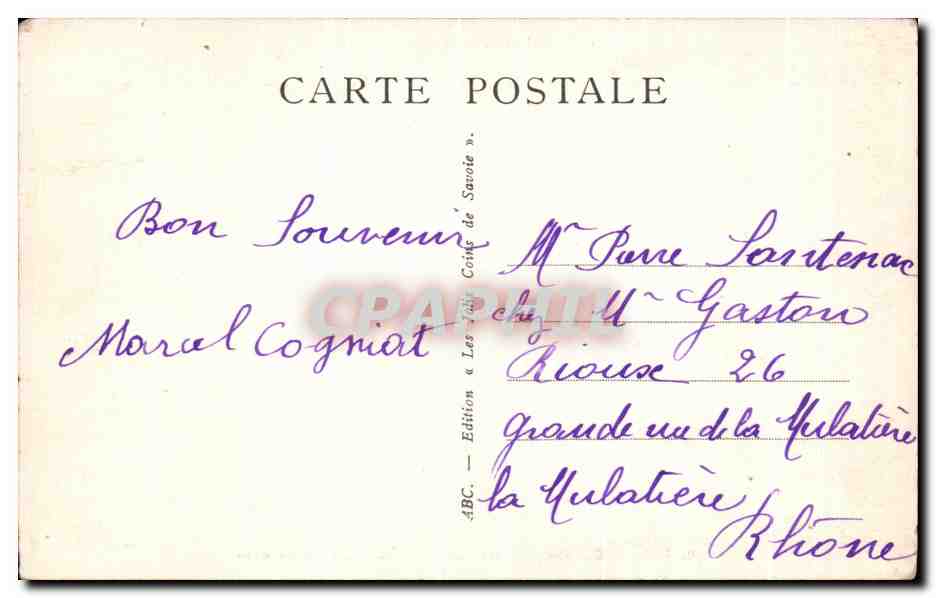 CARTE POSTALE
Bon Souvenir
Marcel Cogniat
ABC. — Edition « Les Jolis Coins de Savoie ».
Mr Pierre Santenac
chez Mr Gaston
Rioux 26
grande rue de la Mulatière
la Mulatière
Rhône
CPAPHIL